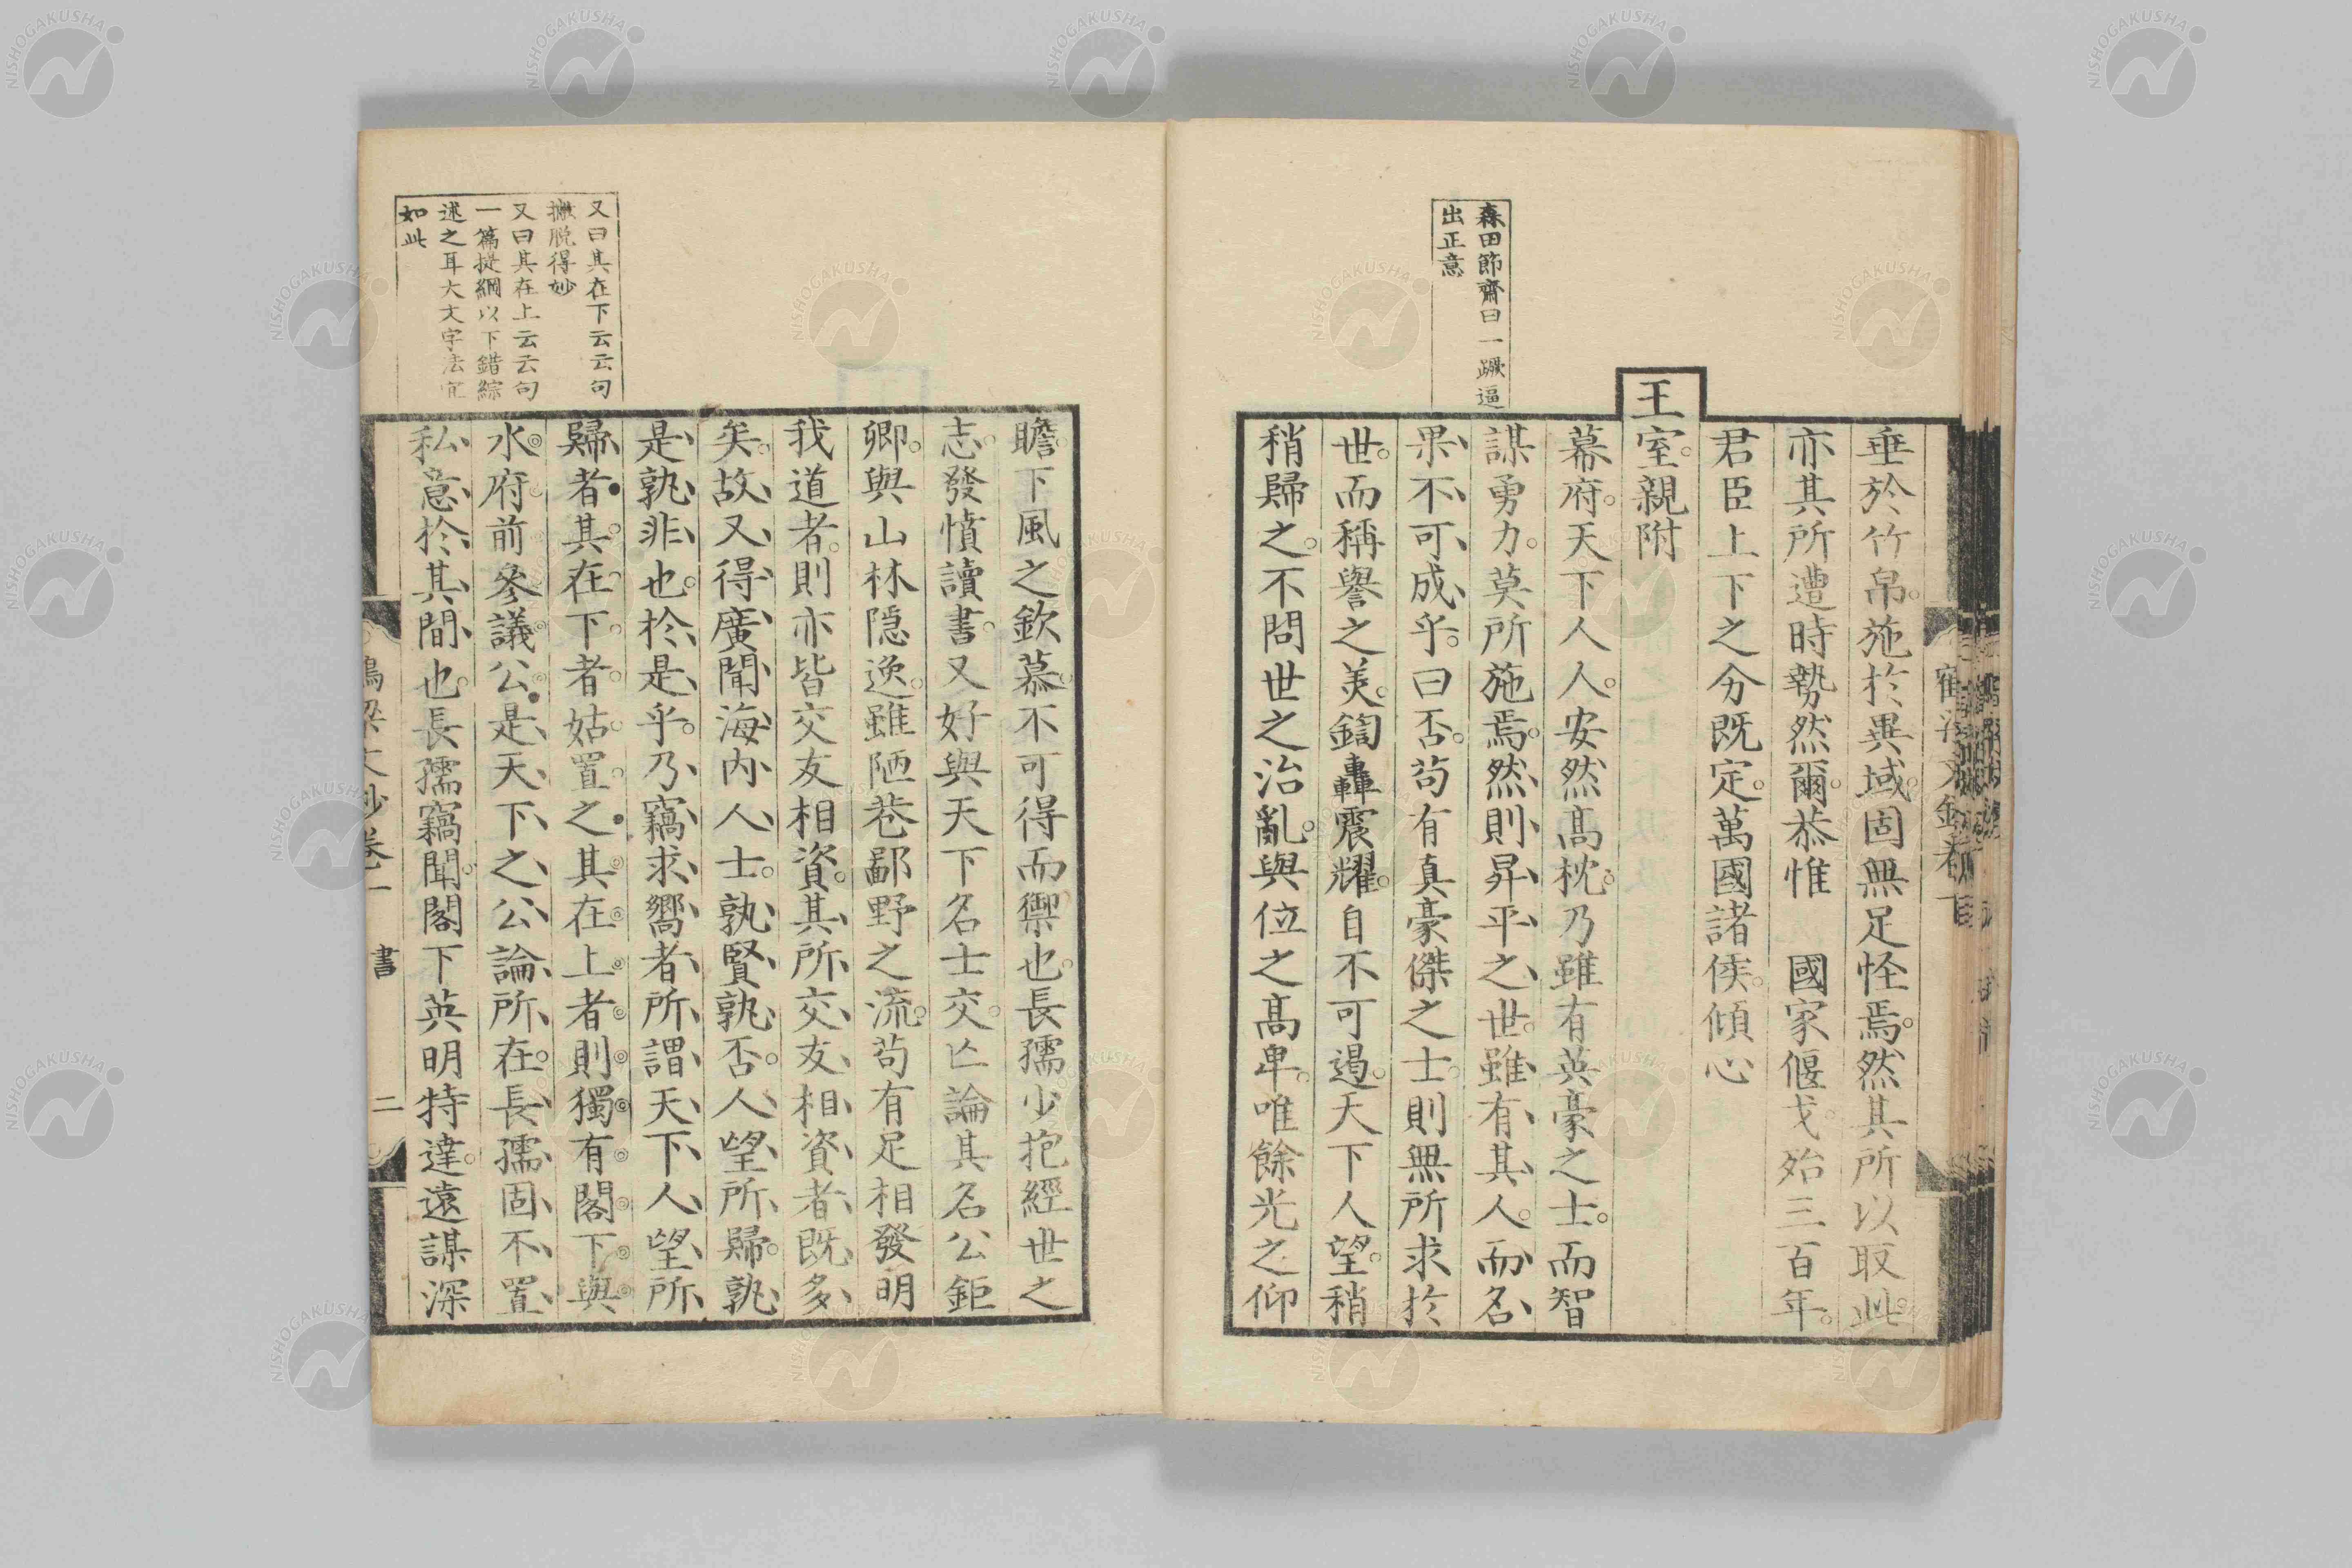 森田節齋曰一蹶逼
出正意
垂於竹帛。施於異域。固無足怪焉。然其所以取此。
亦其所遭時勢然爾。恭惟　國家偃戈。殆三百年。
君臣上下之分既定。萬國諸侯。傾心
王室。親附
幕府。天下人人。安然高枕。乃雖有英豪之士。而智
謀勇力。莫所施焉。然則昇平之世。雖有其人。而名
果不可成乎。曰否。苟有真豪傑之士。則無所求於
世。而稱譽之美。鍧轟震耀。自不可遏。天下人望。稍
稍歸之。不問世之治亂。與位之高卑。唯餘光之仰
又曰其在下云云句
撇脱得妙
又曰其在上云云句
一篇提綱以下錯綜
述之耳大文字法宜
如此
瞻下風之欽慕。不可得而禦也。長孺少抱經世之
志。發憤讀書。又好與天下名士交。亡論其名公鉅
卿。與山林隱逸。雖陋巷鄙野之流。苟有足相發明
我道者。則亦皆交友相資。其所交友相資者既多
矣。故又得廣聞海内人士。孰賢孰否。人望所歸。孰
是孰非也。於是乎。乃竊求嚮者所謂天下人望所
歸者。其在下者。姑置之。其在上者。則獨有閣下與
水府前參議公。是天下之公論所在。長孺固不置
私意於其間也。長孺竊聞。閣下英明特達。遠謀深
文鈔卷一　書　二